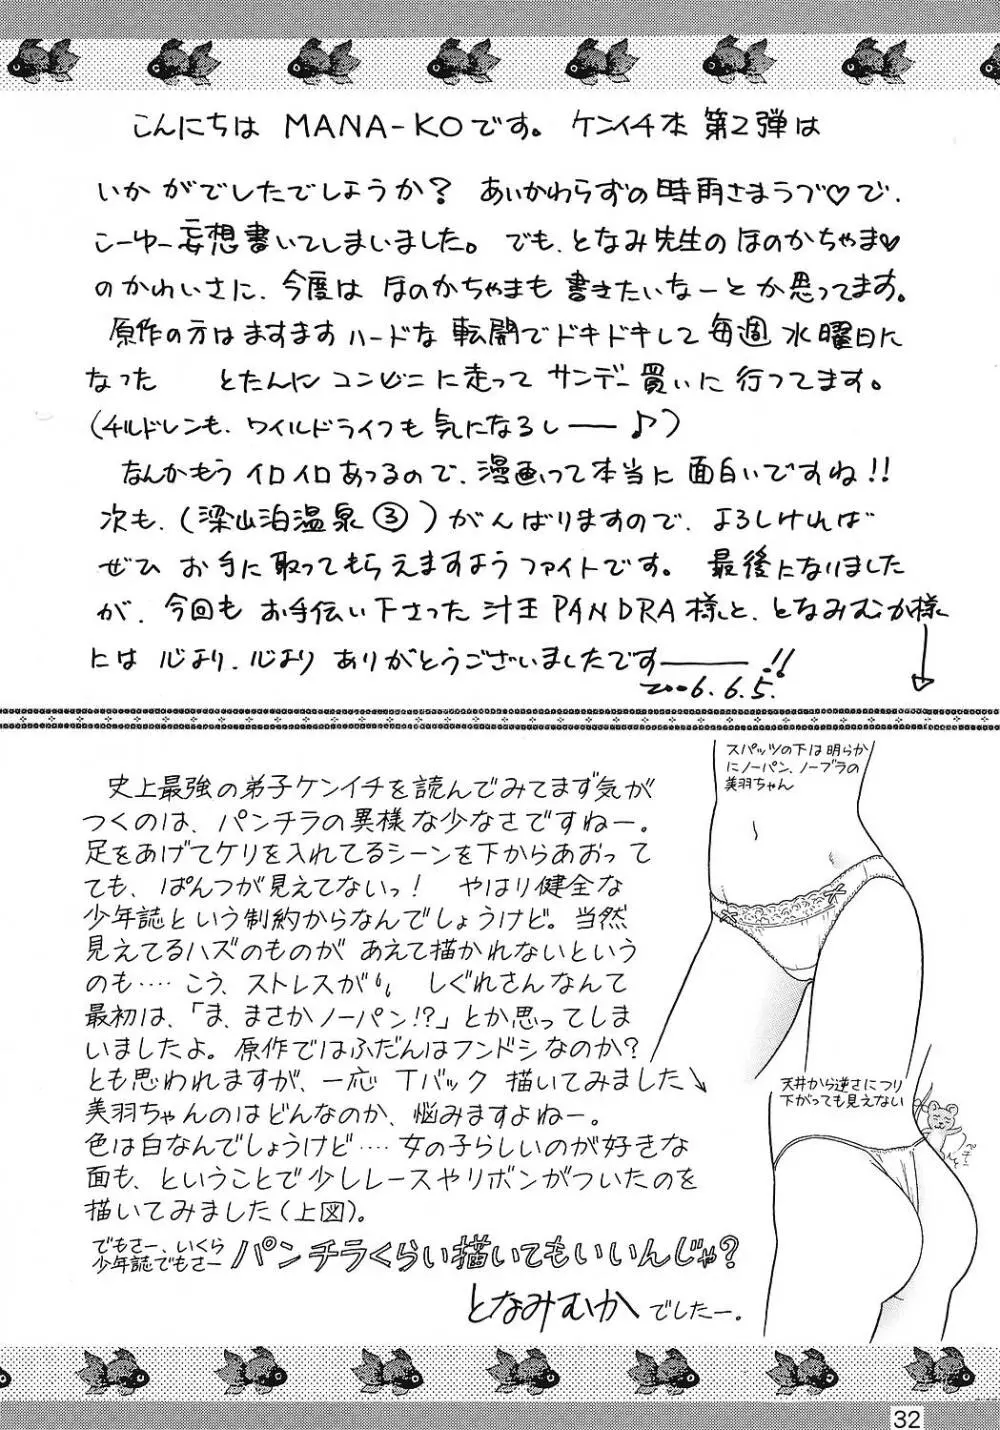 こんにちは MANA-KOです。ケンイチ本 第2弾は
いかがでしたでしょうか? あいかわらずの時雨さまラブ♡で、
こーゆー妄想書いてしまいました。でも、となみ先生のほのかちゃま♡
のかわいさに、今度は ほのかちゃまも 書きたいなーとか思ってます。
原作の方はますますハードな 転開でドキドキして毎週 水曜日に
なった とたんに コンビニに走って サンデー買いに行ってます。
(チルドレンも、ワイルドライフも気になるし——♪)
なんかもう イロイロあつるので、漫画って本当に 面白いですね!!
次も、(梁山泊温泉③)がんばりますので、よろしければ
ぜひ お手に取ってもらえますよう ファイトです。 最後になりました
が、今回も お手伝い下さった 汁王PANDRA様と、となみむか様
には 心より、心より ありがとうございましたです——!!
2006.6.5.
スパッツの下は明らか
にノーパン、ノーブラの
美羽ちゃん
史上最強の弟子ケンイチを読んでみてまず気が
つくのは、パンチラの異様な少なさですねー。
足をあげてケリを入れてるシーンを下からあおって
ても、ぱんつが見えてないっ! やはり健全な
少年誌という制約からなんでしょうけど。当然
見えてるハズのものが あえて描かれないという
のも…… こう、ストレスが しぐれさんなんて
最初は、「ま、まさかノーパン!?」とか思ってしま
いましたよ。原作ではふだんはフンドシなのか?
とも思われますが、一応 Tバック 描いてみました↘
美羽ちゃんのはどんなのか、悩みますよねー。
色は白なんでしょうけど…… 女の子らしいのが好きな
面も、ということで少しレースやリボンがついたのを
描いてみました(上図)。
天井から逆さにつり
下がっても見えない
でもさー、いくら
少年誌でもさー パンチラくらい描いてもいいんじゃ?
となみむか でしたー。
32